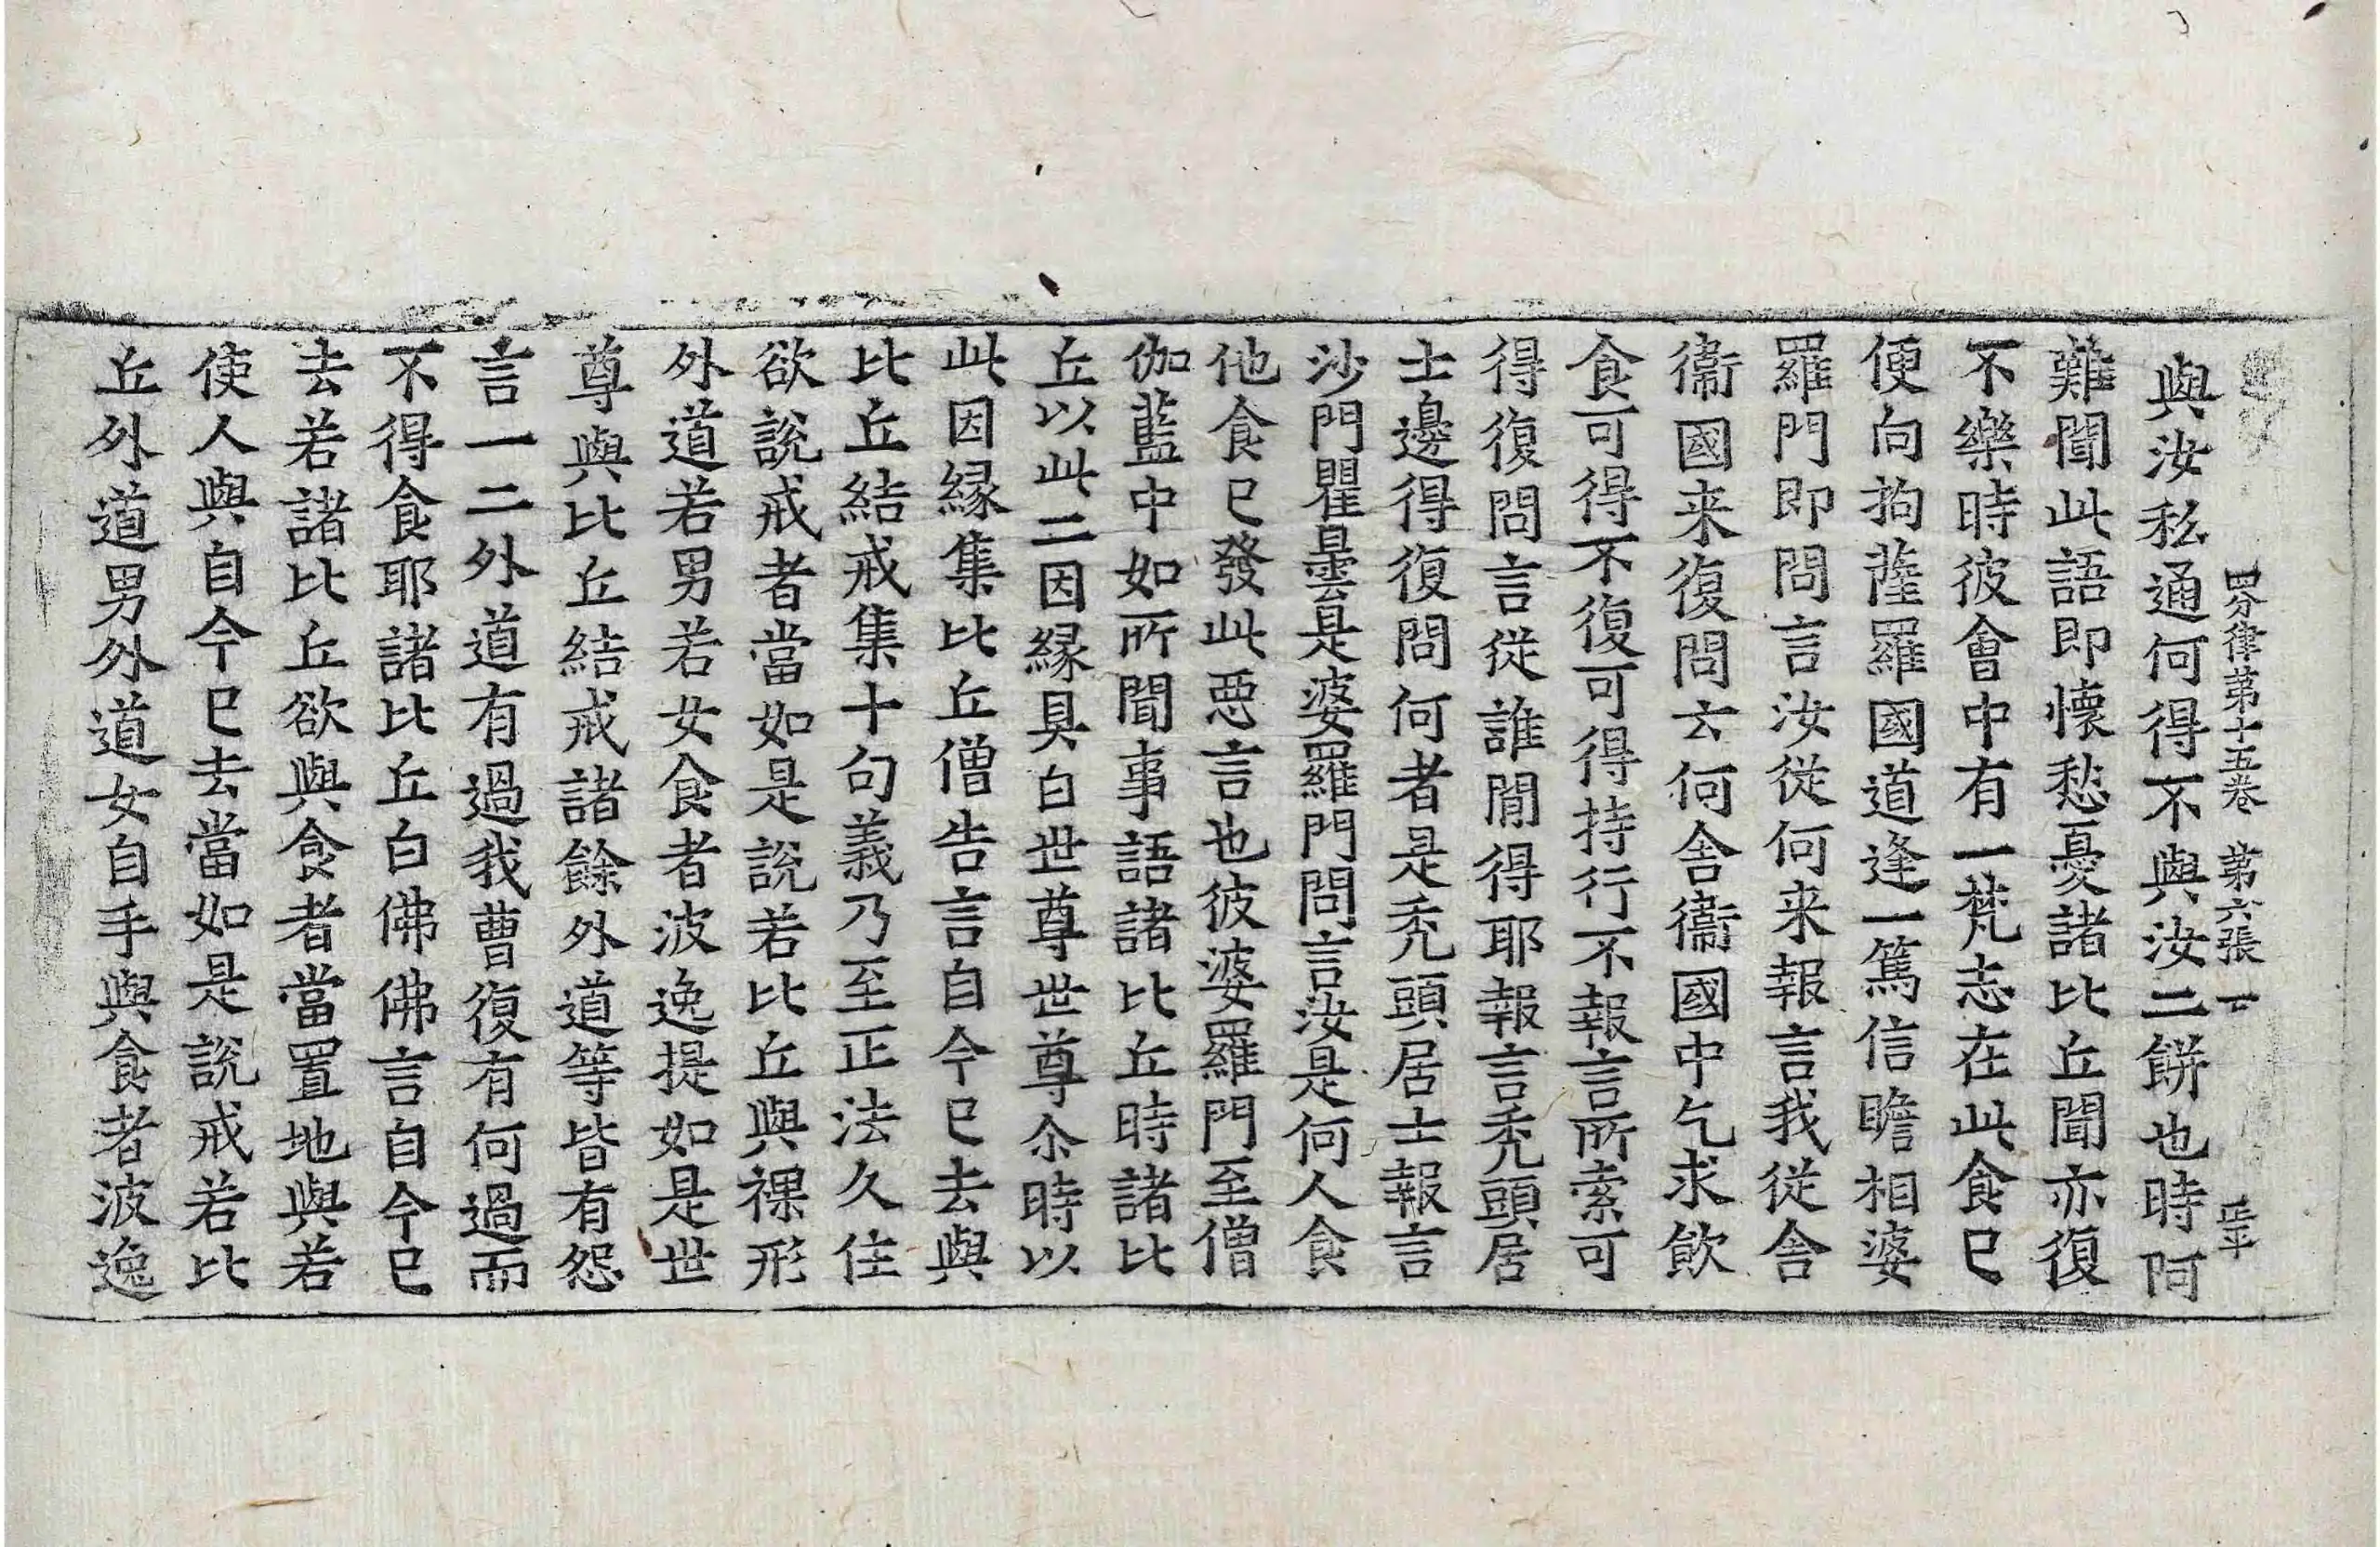 四分律第十五卷 第六張 一
與汝私通何得不與汝二餅也時阿
難聞此語即懷愁憂諸比丘聞亦復
不樂時彼會中有一梵志在此食已
便向拘薩羅國道逢一篤信瞻相婆
羅門即問言汝從何来報言我從舍
衞國来復問云何舍衞國中乞求飲
食可得不復可得持行不報言所索可
得復問言從誰閒得耶報言禿頭居
士邊得復問何者是禿頭居士報言
沙門瞿曇是婆羅門問言汝是何人食
他食已發此惡言也彼婆羅門至僧
伽藍中如所聞事語諸比丘時諸比
丘以此二因縁具白世尊世尊尒時以
此因縁集比丘僧告言自今已去與
比丘結戒集十句義乃至正法久住
欲說戒者當如是說若比丘與裸形
外道若男若女食者波逸提如是世
尊與比丘結戒諸餘外道等皆有怨
言一二外道有過我曹復有何過而
不得食耶諸比丘白佛佛言自今已
去若諸比丘欲與食者當置地與若
使人與自今已去當如是說戒若比
丘外道男外道女自手與食者波逸